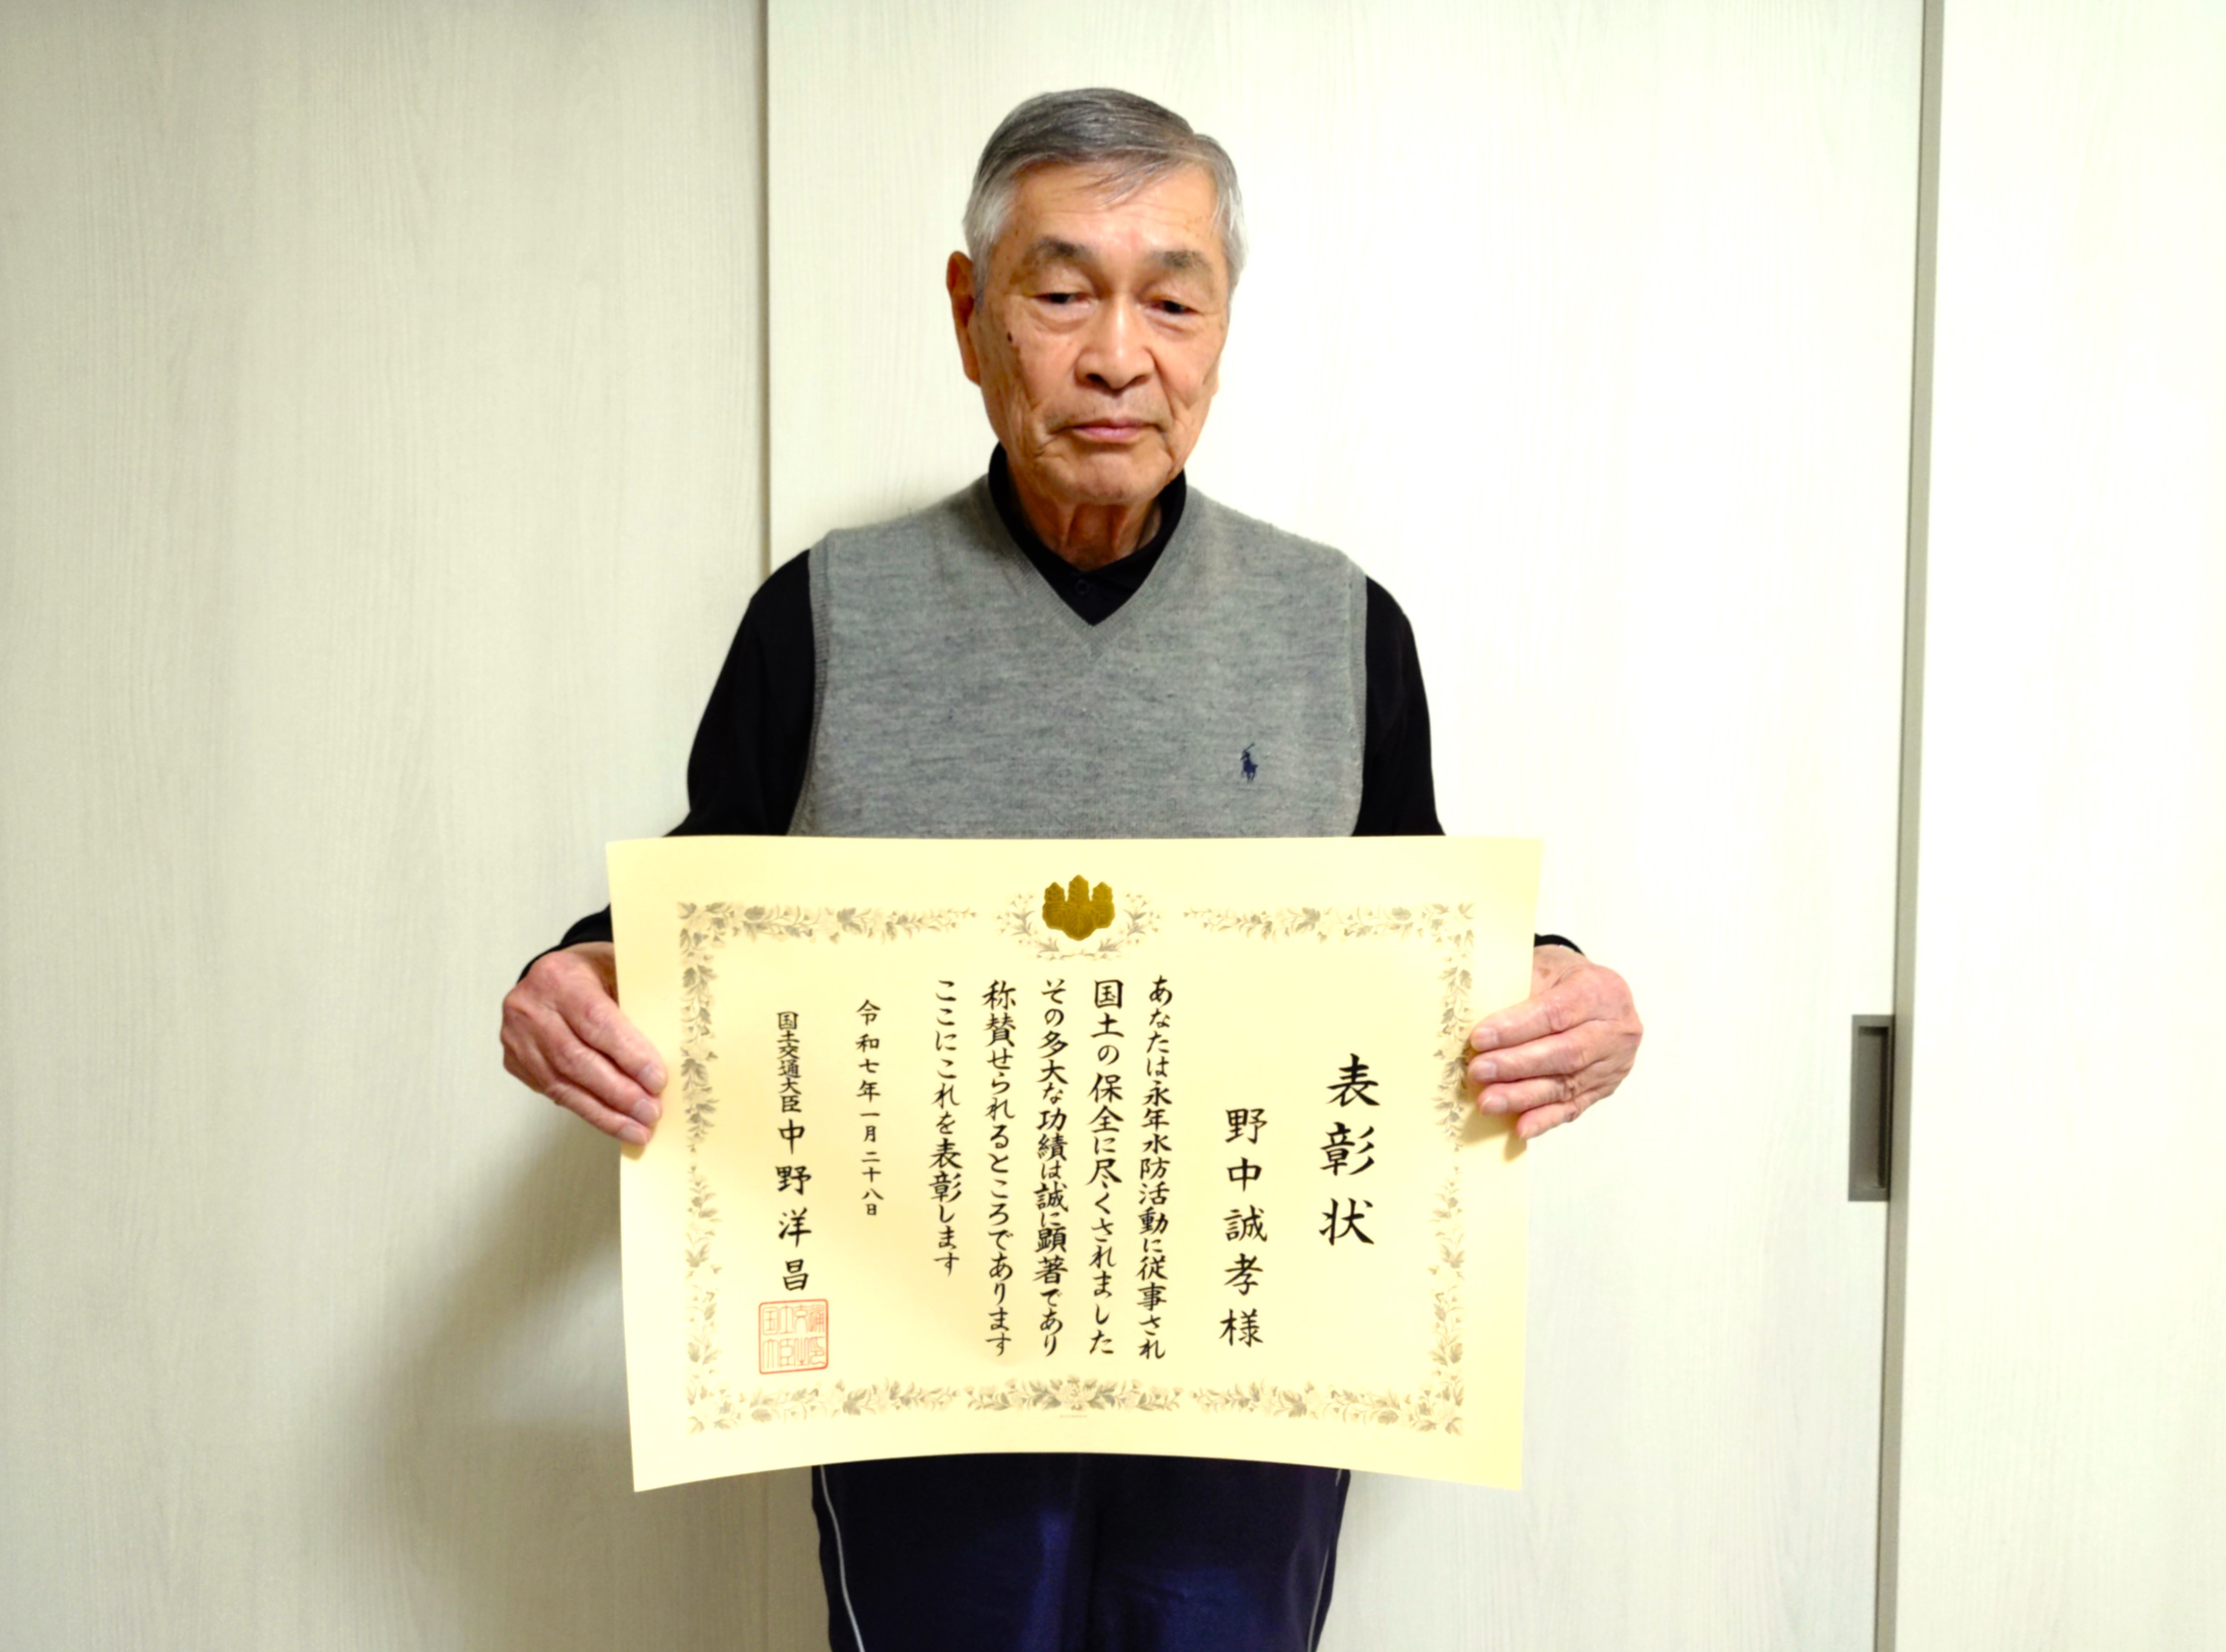 表彰状
野中誠孝様
あなたは永年水防活動に従事され
国土の保全に尽くされました
その多大な功績は誠に顕著であり
称賛せられるところであります
ここにこれを表彰します
令和七年一月二十八日
国土交通大臣 中野洋昌